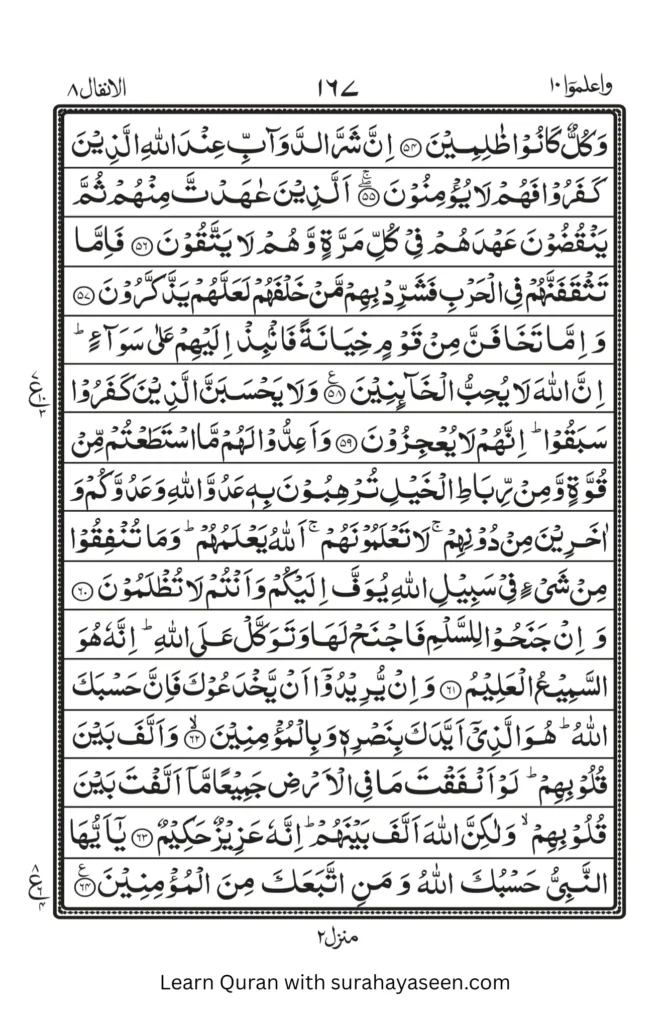 واعلموٓا ١٠ ١٦٧ الانفال ٨
وَكُلٌّ كَانُوۡا ظٰلِمِيۡنَ ﴿۵۴﴾ اِنَّ شَرَّ الدَّوَآبِّ عِنۡدَ اللّٰهِ الَّذِيۡنَ
كَفَرُوۡا فَهُمۡ لَا يُؤۡمِنُوۡنَ ۖۚ ﴿۵۵﴾ اَلَّذِيۡنَ عٰهَدۡتَّ مِنۡهُمۡ ثُمَّ
يَنۡقُضُوۡنَ عَهۡدَهُمۡ فِىۡ كُلِّ مَرَّةٍ وَّهُمۡ لَا يَتَّقُوۡنَ ﴿۵۶﴾ فَاِمَّا
تَثۡقَفَنَّهُمۡ فِى الۡحَرۡبِ فَشَرِّدۡ بِهِمۡ مَّنۡ خَلۡفَهُمۡ لَعَلَّهُمۡ يَذَّكَّرُوۡنَ ﴿۵۷﴾
وَاِمَّا تَخَافَنَّ مِنۡ قَوۡمٍ خِيَانَةً فَانۡۢبِذۡ اِلَيۡهِمۡ عَلٰى سَوَآءٍ ؕ
اِنَّ اللّٰهَ لَا يُحِبُّ الۡخَآٮِٕنِيۡنَ ﴿۵۸﴾ ع وَلَا يَحۡسَبَنَّ الَّذِيۡنَ كَفَرُوۡا
سَبَقُوۡا ؕ اِنَّهُمۡ لَا يُعۡجِزُوۡنَ ﴿۵۹﴾ وَاَعِدُّوۡا لَهُمۡ مَّا اسۡتَطَعۡتُمۡ مِّنۡ
قُوَّةٍ وَّمِنۡ رِّبَاطِ الۡخَيۡلِ تُرۡهِبُوۡنَ بِهٖ عَدُوَّ اللّٰهِ وَعَدُوَّكُمۡ وَ
اٰخَرِيۡنَ مِنۡ دُوۡنِهِمۡ ۚ لَا تَعۡلَمُوۡنَهُمۡ ۚ اَللّٰهُ يَعۡلَمُهُمۡ ؕ وَمَا تُنۡفِقُوۡا
مِنۡ شَىۡءٍ فِىۡ سَبِيۡلِ اللّٰهِ يُوَفَّ اِلَيۡكُمۡ وَاَنۡتُمۡ لَا تُظۡلَمُوۡنَ ﴿۶۰﴾
وَاِنۡ جَنَحُوۡا لِلسَّلۡمِ فَاجۡنَحۡ لَهَا وَتَوَكَّلۡ عَلَى اللّٰهِ ؕ اِنَّهٗ هُوَ
السَّمِيۡعُ الۡعَلِيۡمُ ﴿۶۱﴾ وَاِنۡ يُّرِيۡدُوۡۤا اَنۡ يَّخۡدَعُوۡكَ فَاِنَّ حَسۡبَكَ
اللّٰهُ ؕ هُوَ الَّذِىۡۤ اَيَّدَكَ بِنَصۡرِهٖ وَبِالۡمُؤۡمِنِيۡنَ ۙ ﴿۶۲﴾ وَاَلَّفَ بَيۡنَ
قُلُوۡبِهِمۡ ؕ لَوۡ اَنۡفَقۡتَ مَا فِى الۡاَرۡضِ جَمِيۡعًا مَّاۤ اَلَّفۡتَ بَيۡنَ
قُلُوۡبِهِمۡ ۙ وَلٰكِنَّ اللّٰهَ اَلَّفَ بَيۡنَهُمۡ ؕ اِنَّهٗ عَزِيۡزٌ حَكِيۡمٌ ﴿۶۳﴾ يٰۤاَيُّهَا
النَّبِىُّ حَسۡبُكَ اللّٰهُ وَمَنِ اتَّبَعَكَ مِنَ الۡمُؤۡمِنِيۡنَ ﴿۶۴﴾ ع
منزل ٢
Learn Quran with surahayaseen.com